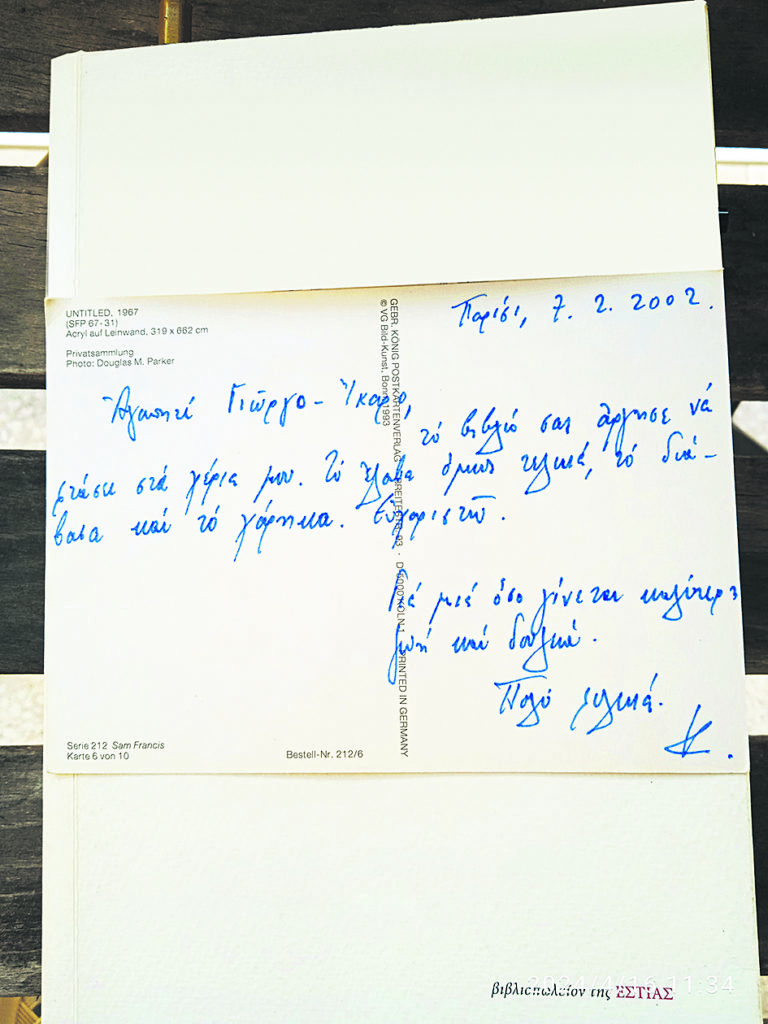 UNTITLED, 1967
(SFP 67-31)
Acryl auf Leinwand, 319 x 662 cm
Privatsammlung
Photo: Douglas M. Parker
GEBR. KÖNIG POSTKARTENVERLAG · BREITESTR. 93 · D-5000 KÖLN 1 · PRINTED IN GERMANY
© VG Bild-Kunst, Bonn 1993
Παρίσι, 7. 2. 2002.
Ἀγαπητέ Γιώργο-Ἴκαρε,
τό βιβλίο σας ἄργησε νά
φτάσει στά χέρια μου. Τό ἔλαβα ὅμως τελικά, τό διά-
βασα καί τό χάρηκα. Εὐχαριστῶ.
Γιά μιά ὅσο γίνεται καλύτερη
ζωή καί δουλειά.
Πολύ φιλικά.
Κ.
Serie 212 Sam Francis
Karte 6 von 10
Bestell-Nr. 212/6
βιβλιοπωλεῖον της ΕΣΤΙΑΣ
2024/4/16 11:34